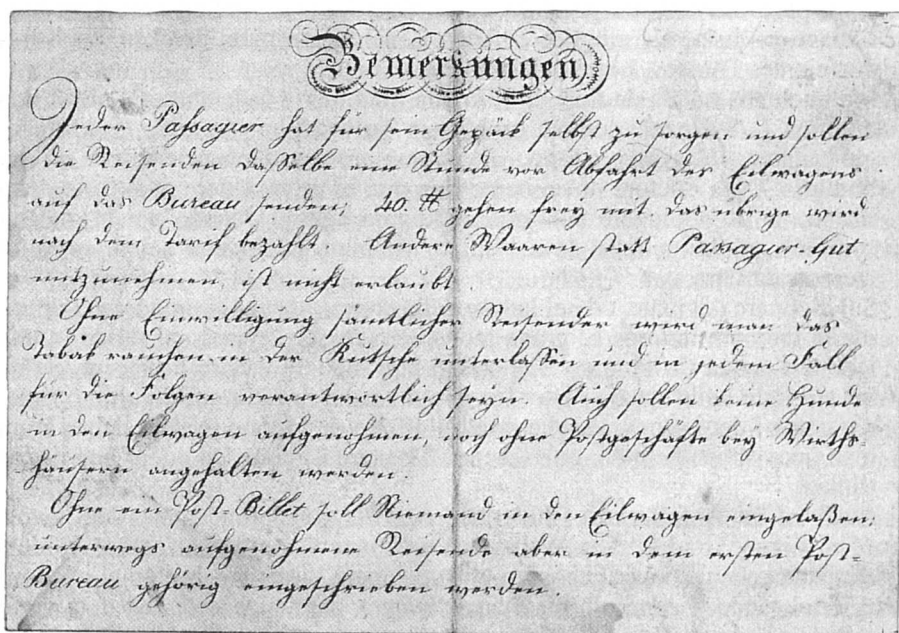 Bemerkungen
Jeder Passagier hat für sein Gepäck selbst zu sorgen und sollen
die Reisenden dasselbe eine Stunde vor Abfahrt des Eilwagens
auf das Bureau senden; 40. ℔ gehen frey mit das übrige wird
nach dem Tarif bezahlt. Andere Waaren statt Passagier-Gut
mitzunehmen, ist nicht erlaubt
Ohne Einwilligung sämtlicher Reisender wird man das
Tabak rauchen in der Kutsche unterlassen und in jedem Fall
für die Folgen verantwortlich seyn. Auch sollen keine Hunde
in den Eilwagen aufgenohmen, noch ohne Postgeschäfte bey Wirths-
häusern angehalten werden.
Ohne ein Post-Billet soll Niemand in den Eilwagen eingelaßen;
unterwegs aufgenohmene Reisende aber in dem ersten Post-
Bureau gehörig eingeschrieben werden.